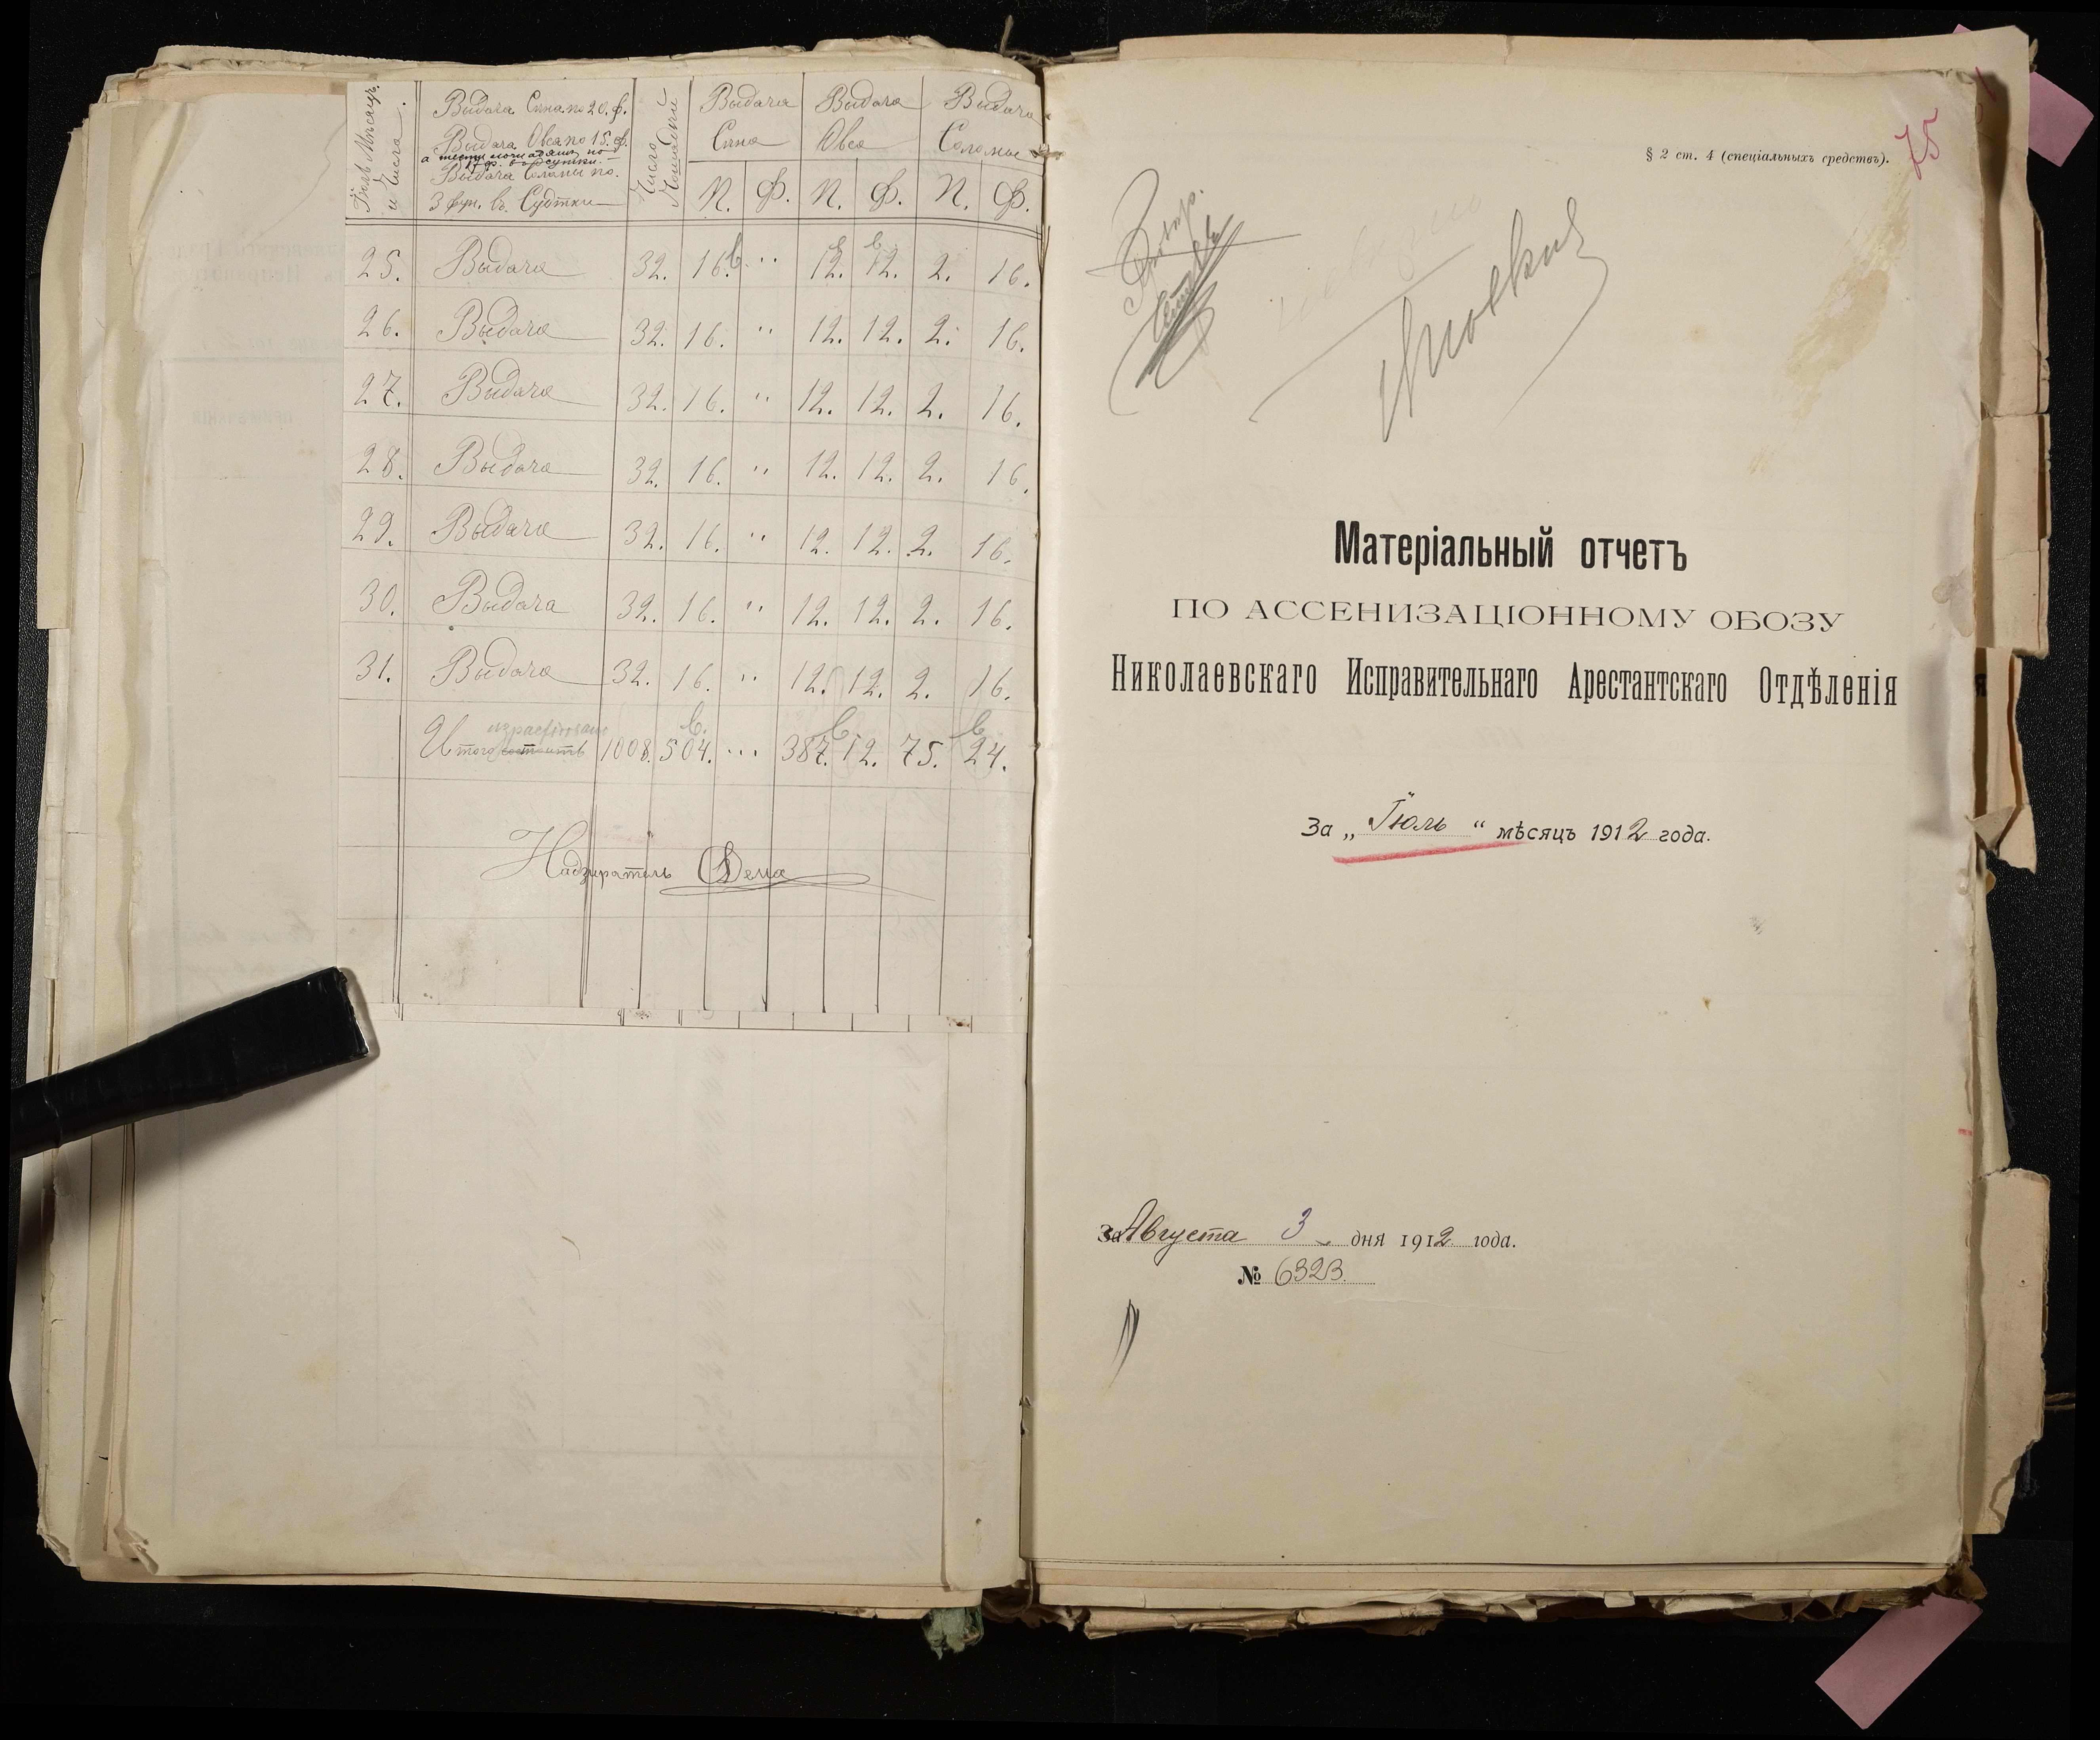 Іюль Мѣсяцъ и Числа.
Выдача Сѣна по 20. ф.
Выдача Овса по 15. ф.
а шести лошадямъ по
17 ф. въ сутки.
Выдача Соломы по.
3 фун. въ Сутки
Число Лошадей
Выдача Сѣна
Выдача Овса
Выдача Соломы
П. Ф. П. Ф. П. Ф.
25. Выдача 32. 16. " 12. 12. 2. 16.
26. Выдача 32. 16. " 12. 12. 2. 16.
27. Выдача 32. 16. " 12. 12. 2. 16.
28. Выдача 32. 16. " 12. 12. 2. 16.
29. Выдача 32. 16. " 12. 12. 2. 16.
30. Выдача 32. 16. " 12. 12. 2. 16.
31. Выдача 32. 16. " 12. 12. 2. 16.
израсходовано
Итого состоитъ 1008. 504. " 387. 12. 75. 24.
Надзиратель
75
§ 2 ст. 4 (спеціальныхъ средствъ).
Матеріальный отчетъ
ПО АССЕНИЗАЦІОННОМУ ОБОЗУ
Николаевскаго Исправительнаго Арестантскаго Отдѣленія
За „ Іюль “ мѣсяцъ 1912 года.
За Августа 3 дня 1912 года.
№ 6323.